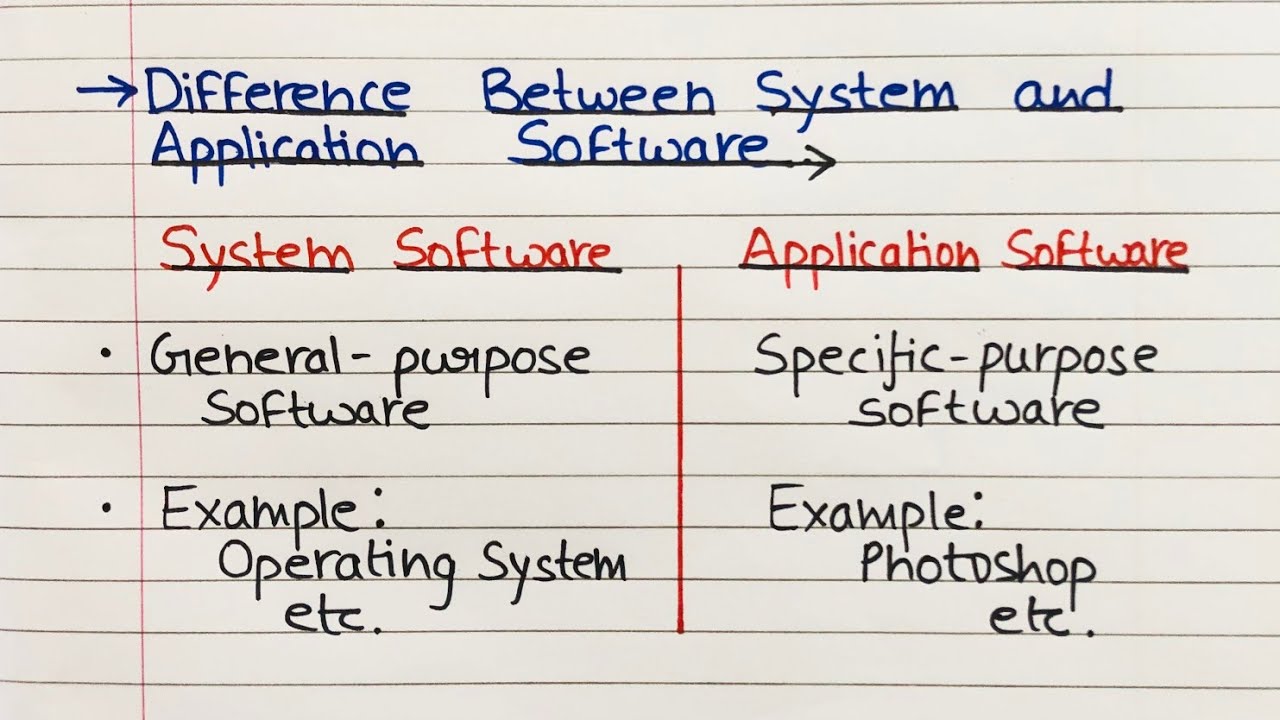 →Difference Between System and
Application Software→
System Software
Application Software
• General-purpose
Software
Specific-purpose
software
• Example:
Operating System
etc.
Example:
Photoshop
etc.